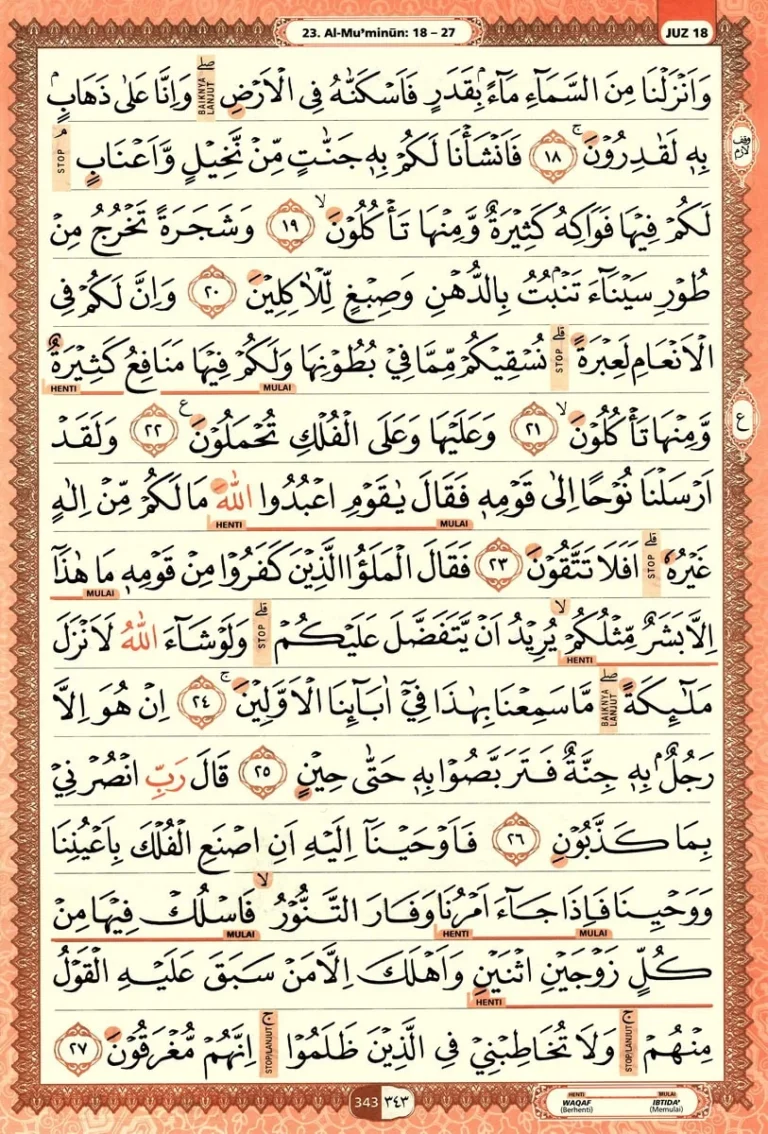 23. Al-Mu’minūn: 18 – 27
JUZ 18
وَاَنْزَلْنَا مِنَ السَّمَاۤءِ مَاۤءًۢ بِقَدَرٍ فَاَسْكَنّٰهُ فِى الْاَرْضِۖ وَاِنَّا عَلٰى ذَهَابٍۢ
BAIKNYA LANJUT
بِهٖ لَقٰدِرُوْنَ ۚ ١٨ فَاَنْشَأْنَا لَكُمْ بِهٖ جَنّٰتٍ مِّنْ نَّخِيْلٍ وَّاَعْنَابٍۘ
STOP
وقف لازم
لَكُمْ فِيْهَا فَوَاكِهُ كَثِيْرَةٌ وَّمِنْهَا تَأْكُلُوْنَ ۙ ١٩ وَشَجَرَةً تَخْرُجُ مِنْ
طُوْرِ سَيْنَاۤءَ تَنْۢبُتُ بِالدُّهْنِ وَصِبْغٍ لِّلْاٰكِلِيْنَ ٢٠ وَاِنَّ لَكُمْ فِى
الْاَنْعَامِ لَعِبْرَةًۗ نُسْقِيْكُمْ مِّمَّا فِيْ بُطُوْنِهَا وَلَكُمْ فِيْهَا مَنَافِعُ كَثِيْرَةٌ
STOP
MULAI
HENTI
وَّمِنْهَا تَأْكُلُوْنَ ۙ ٢١ وَعَلَيْهَا وَعَلَى الْفُلْكِ تُحْمَلُوْنَ ࣖ ٢٢ وَلَقَدْ
ع
اَرْسَلْنَا نُوْحًا اِلٰى قَوْمِهٖ فَقَالَ يٰقَوْمِ اعْبُدُوا اللّٰهَ مَا لَكُمْ مِّنْ اِلٰهٍ
MULAI
HENTI
غَيْرُهٗۗ اَفَلَا تَتَّقُوْنَ ٢٣ فَقَالَ الْمَلَؤُا الَّذِيْنَ كَفَرُوْا مِنْ قَوْمِهٖ مَا هٰذَآ
STOP
MULAI
اِلَّا بَشَرٌ مِّثْلُكُمْۙ يُرِيْدُ اَنْ يَّتَفَضَّلَ عَلَيْكُمْۗ وَلَوْ شَاۤءَ اللّٰهُ لَاَنْزَلَ
HENTI
STOP
مَلٰۤىِٕكَةًۖ مَّا سَمِعْنَا بِهٰذَا فِيْٓ اٰبَاۤىِٕنَا الْاَوَّلِيْنَ ۚ ٢٤ اِنْ هُوَ اِلَّا
BAIKNYA LANJUT
رَجُلٌۢ بِهٖ جِنَّةٌ فَتَرَبَّصُوْا بِهٖ حَتّٰى حِيْنٍ ٢٥ قَالَ رَبِّ انْصُرْنِيْ
بِمَا كَذَّبُوْنِ ٢٦ فَاَوْحَيْنَآ اِلَيْهِ اَنِ اصْنَعِ الْفُلْكَ بِاَعْيُنِنَا
وَوَحْيِنَا فَاِذَا جَاۤءَ اَمْرُنَا وَفَارَ التَّنُّوْرُۙ فَاسْلُكْ فِيْهَا مِنْ
MULAI
HENTI
MULAI
كُلٍّ زَوْجَيْنِ اثْنَيْنِ وَاَهْلَكَ اِلَّا مَنْ سَبَقَ عَلَيْهِ الْقَوْلُ
HENTI
مِنْهُمْۚ وَلَا تُخَاطِبْنِيْ فِى الَّذِيْنَ ظَلَمُوْاۚ اِنَّهُمْ مُّغْرَقُوْنَ ٢٧
STOP/LANJUT
STOP/LANJUT
343 ٣٤٣
HENTI MULAI
WAQAF IBTIDA’
(Berhenti) (Memulai)